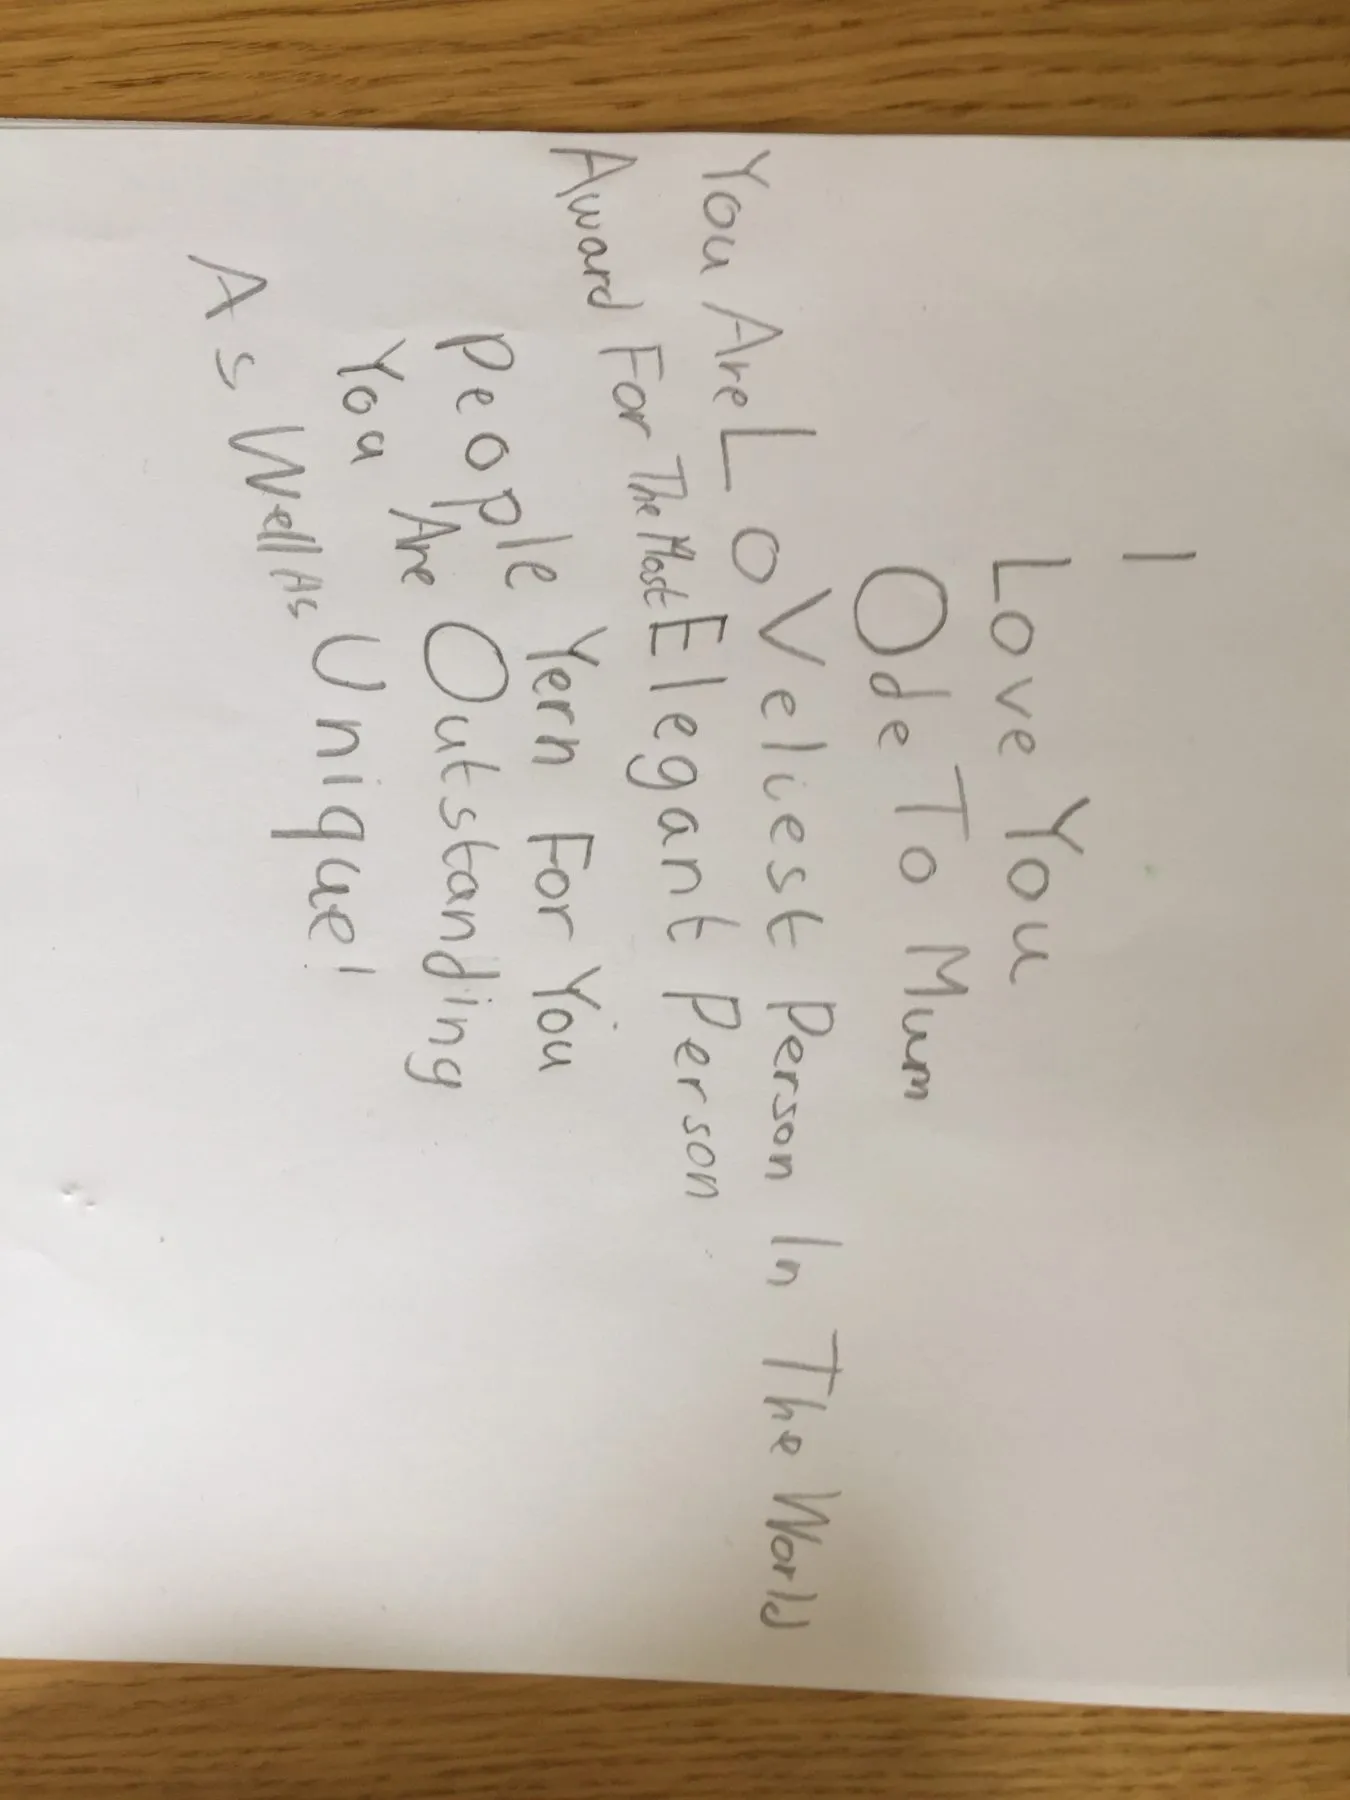 I
Love You
Ode To Mum
You Are LoVeliest Person In The World
Award For The Most Elegant Person
People Yern For You
You Are Outstanding
As Well As Unique!